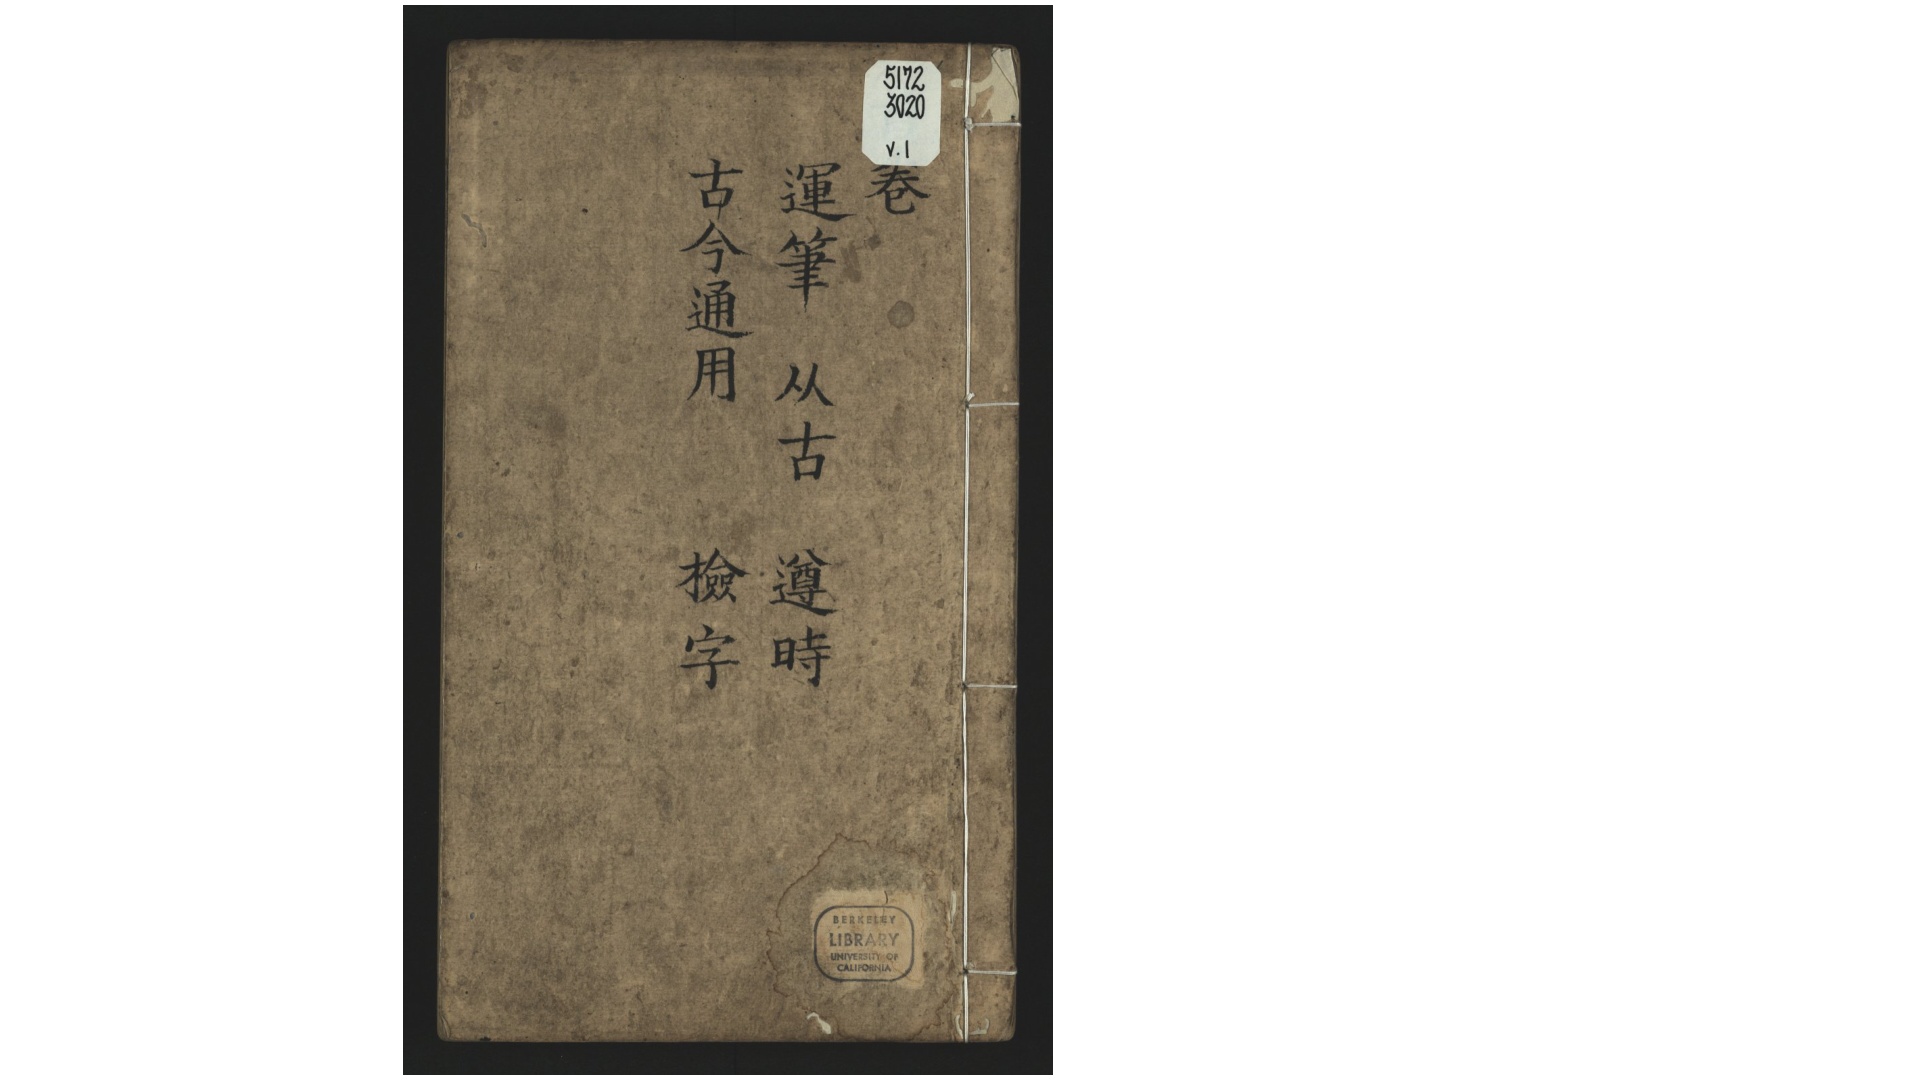 5172
3020
v.1
卷
運筆 从古 遵時
古今通用 檢字
BERKELEY
LIBRARY
UNIVERSITY OF
CALIFORNIA